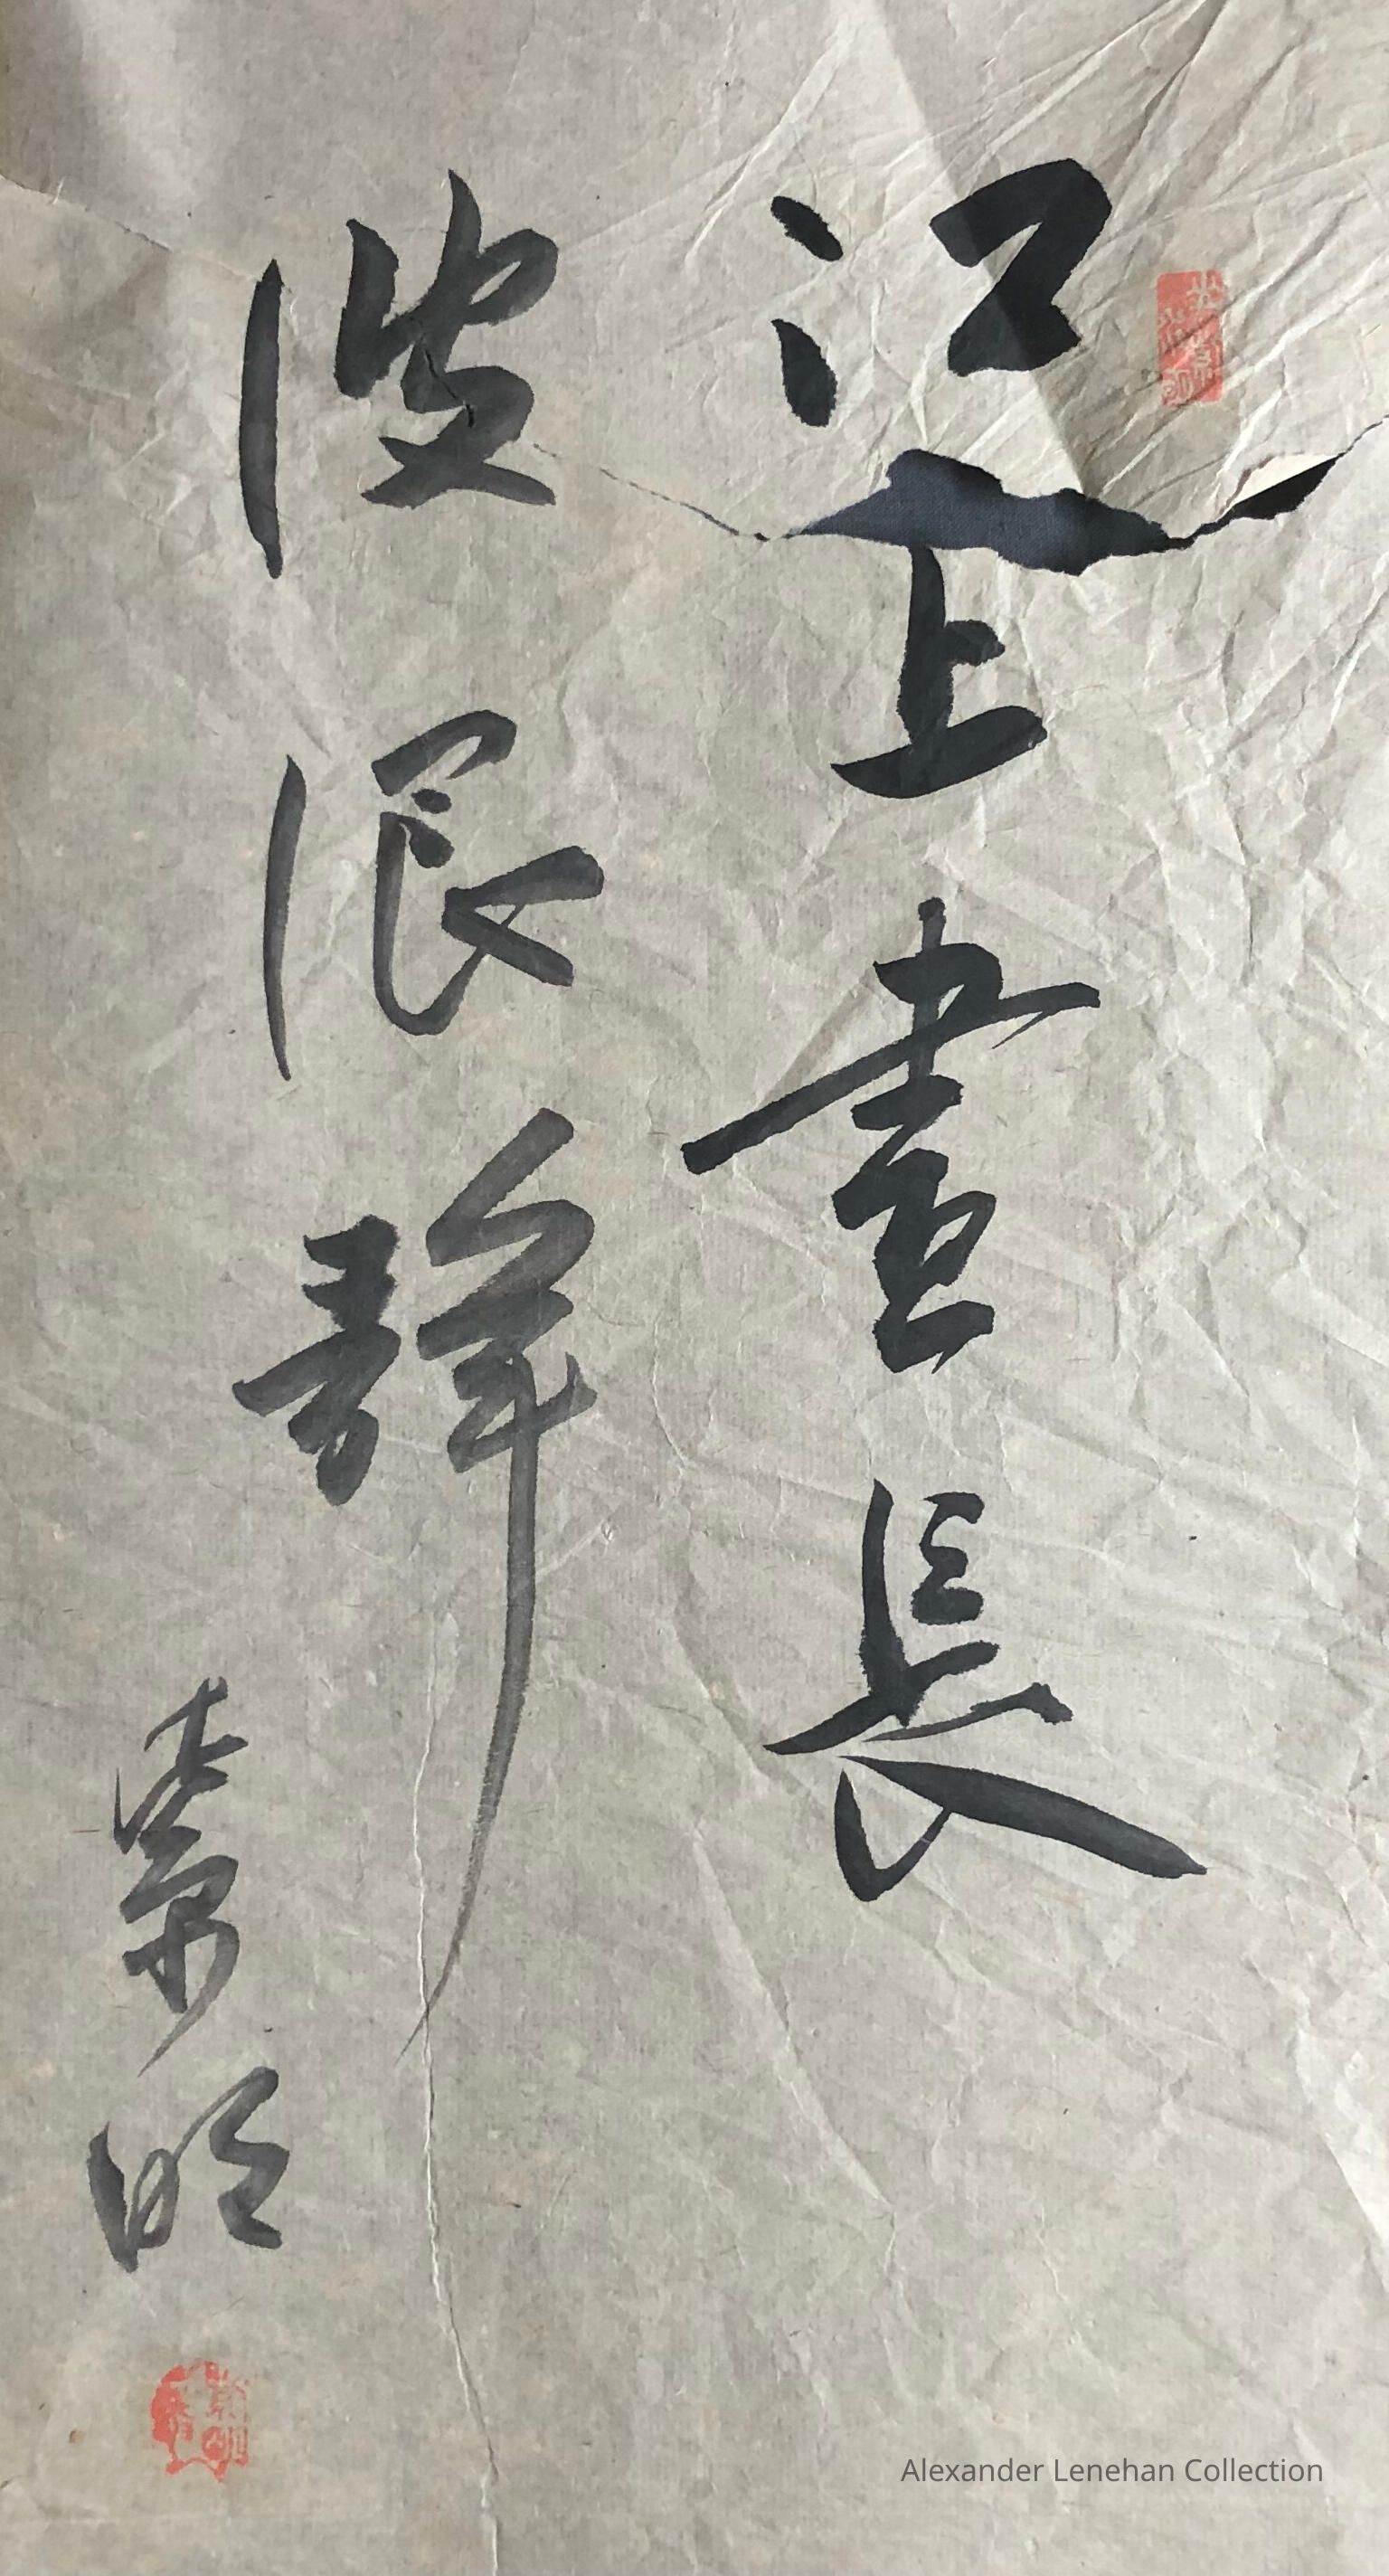 江上晝長
波浪靜
景明
Alexander Lenehan Collection